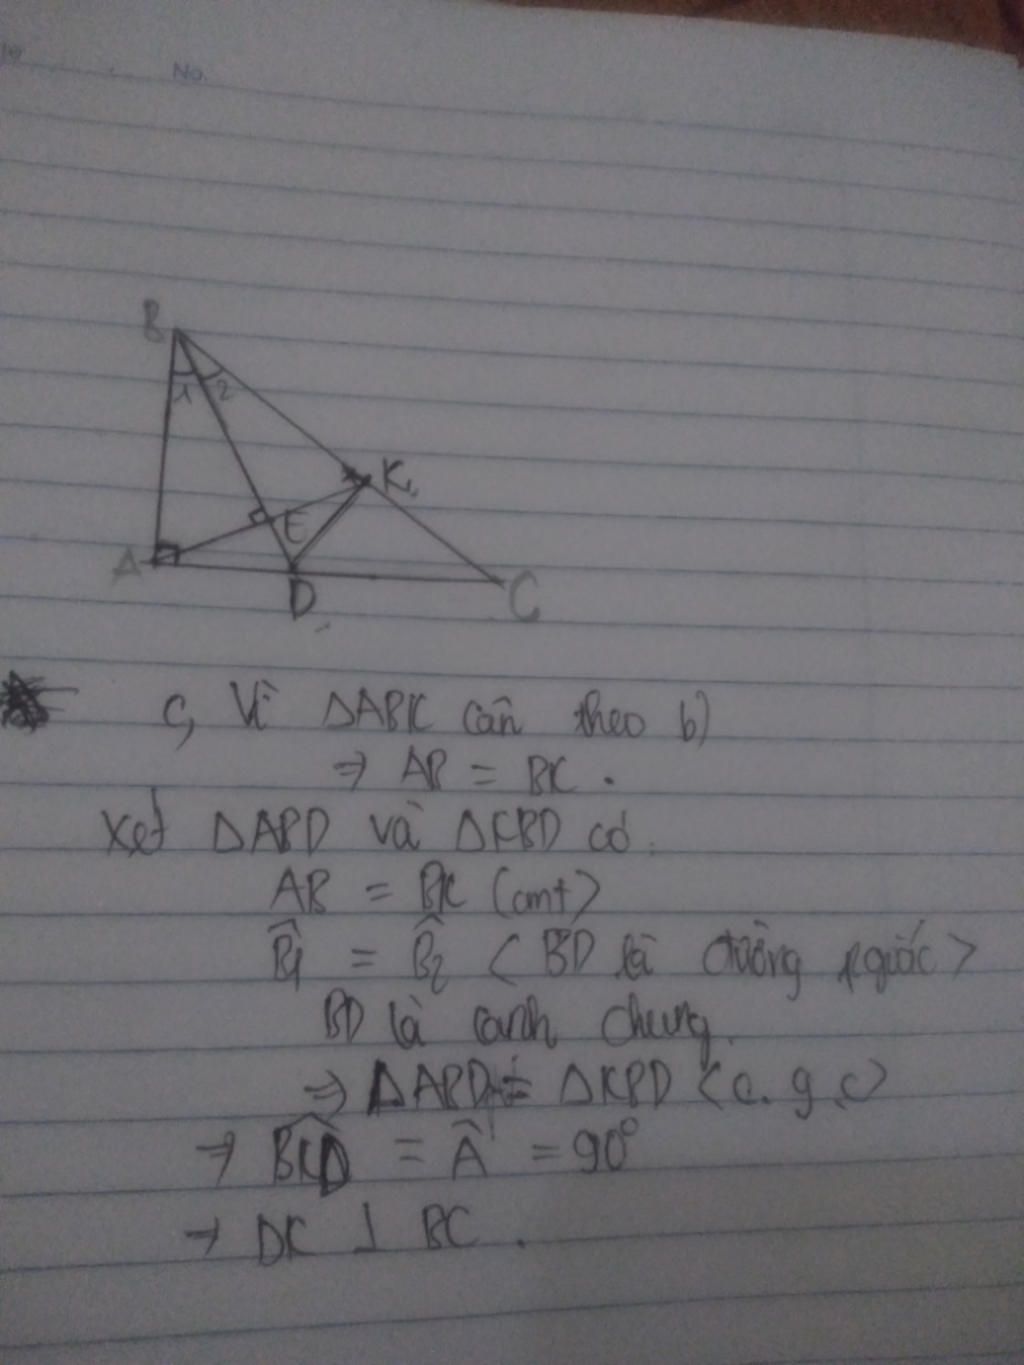 No.
B
1 2
K
E
A
D
C
c, Vì ΔABK cân theo b)
⇒ AB = BK.
Xét ΔABD và ΔKBD có:
AB = BK (cmt)
B̂1 = B̂2 (BD là đường
BD là cạnh chung.
⇒ ΔABD = ΔKBD (c.g.c)
⇒ BKD = Â = 90°
⇒ DK ⊥ BC.